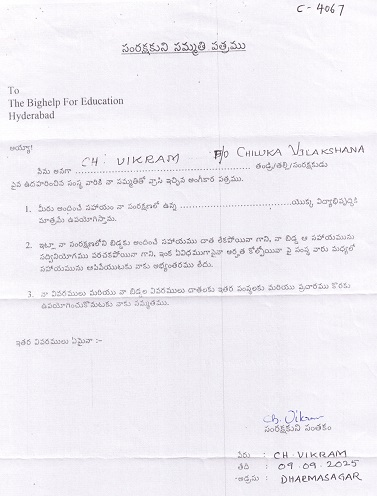 C - 4067
సంరక్షకుని సమ్మతి పత్రము
To
The Bighelp For Education
Hyderabad
అయ్యా!
నేను అనగా CH. VIKRAM F/O CHILUKA VILAKSHANA తండ్రి/తల్లి/సంరక్షకుడు
పైన ఉదహరించిన సంస్థ వారికి నా సమ్మతితో వ్రాసి ఇచ్చిన అంగీకార పత్రము.
1. మీరు అందించే సహాయం నా సంరక్షణలో ఉన్న ........................................ యొక్క విద్యాభివృద్ధికి
మాత్రమే ఉపయోగిస్తాను.
2. ఇట్లా నా సంరక్షణలోని బిడ్డకు అందించే సహాయము దాత లేకపోయినా గాని, నా బిడ్డ ఆ సహాయమును
సద్వినియోగము పరచకపోయినా గాని, ఇంక ఏవిధముగానైనా అర్హత కోల్పోయినా పై సంస్థ వారు మధ్యలో
సహాయమును ఆపివేయుటకు నాకు అభ్యంతరము లేదు.
3. నా వివరములు మరియు నా బిడ్డల వివరములు దాతలకు ఇతర సంస్థలకు మరియు ప్రచారము కొరకు
ఉపయోగించుకొనుటకు నాకు సమ్మతము.
ఇతర వివరములు ఏమైనా :-
Ch. Vikram
సంరక్షకుని సంతకం
పేరు : CH. VIKRAM
తేది : 09.09.2025
అడ్రసు : DHARMASAGAR